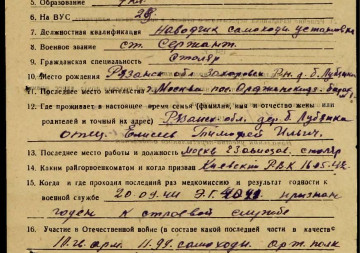 5. Образование
6. На ВУС 28
7. Должностная квалификация Наводчик самоходн. установки
8. Военное звание ст. Сержант.
9. Гражданская специальность Столяр
10. Место рождения Рязанск. обл. Захаровск. Р-н. д. Б. Лубянка
11. Последнее место жительства г. Москва пос.
12. Где проживает в настоящее время семья (фамилия, имя и отчество жены или
родителей и точный адрес) Рязанск. обл. дер. Б. Лубянка
отец. Елисеев Тимофей Ильич.
13. Последнее место работы и должность столяр
14. Каким райгорвоенкоматом и когда призван Киевский РВК
15. Когда и где проходил последний раз медкомиссию и результат годности к
военной службе 20.09.44 признан
годен к строевой службе
16. Участие в Отечественной войне (в составе какой последней части в качестве
арм. самоходн. арт. полк